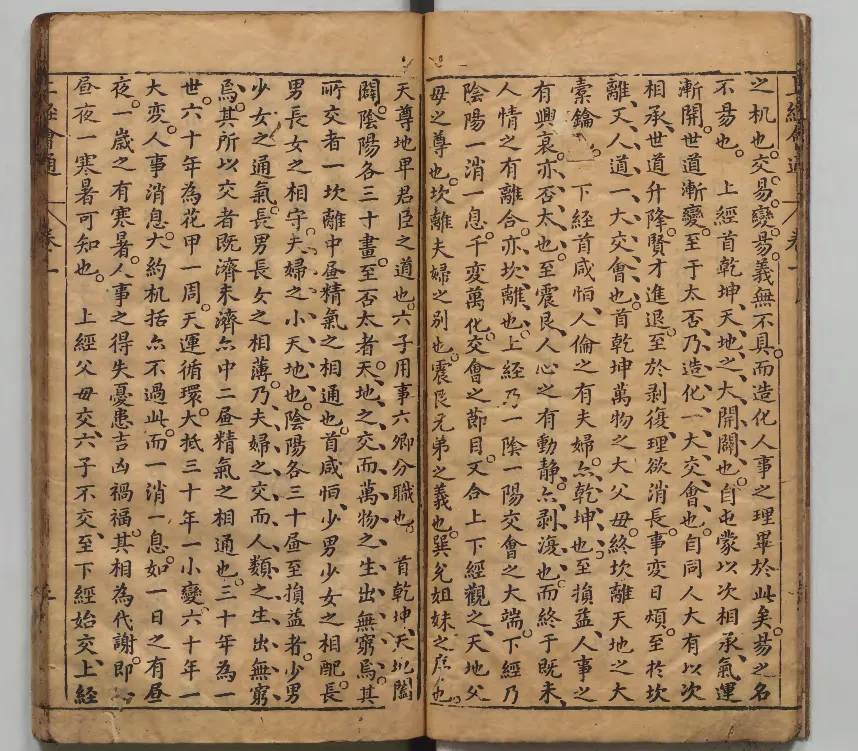 上經會通 卷一
之机也。交易變易。義無不具。而造化人事之理畢於此矣。易之名
不易也。　上經首乾坤天地之大開闢也。自屯蒙以次相承、氣運
漸開。世道漸變。至于太否乃造化一大交會也。自同人大有以次
相承、世道升降。賢才進退。至於剥復、理欲消長。事変日煩。至於坎
離又人道一大交會也。首乾坤萬物之大父母。終坎離天地之大
橐鑰。　下經首咸恒、人倫之有夫婦。亦乾坤也。至損益、人事之
有興衰、亦否太也。至震艮人心之有動静。亦剥復也。而終于既未、
人情之有離合。亦坎離也。上經乃一陰一陽交會之大端。下經乃
陰陽一消一息。千变萬化。交會之節目。又合上下經觀之、天地父
母之尊也。坎離夫婦之别也。震艮兄弟之義也。巽兊姐妹之序也。
天尊地卑君臣之道也。六子用事六卿分職也。　首乾坤天地闔
闢。陰陽各三十畫。至否太者。天地之交而萬物之生出無窮焉。其
所交者一坎離中昼精氣之相通也。首咸恒、少男少女之相配。長
男長女之相守。夫婦之小天地也。陰陽各三十昼至損益者。少男
少女之通氣。長男長女之相薄。乃夫婦之交而人類之生出無窮
焉。其所以交者既濟未濟亦中二昼精氣之相通也。三十年為一
世。六十年為花甲一周。天運循環。大抵三十年一小變。六十年一
大变。人事消息。大約机括亦不過此。而一消一息。如一日之有昼
夜。一歲之有寒暑。人事之得失憂患吉凶禍福。其相為代謝。即
昼夜一寒暑可知也。　上經父母交、六子不交、至下經始交、上經
上經會通 卷一